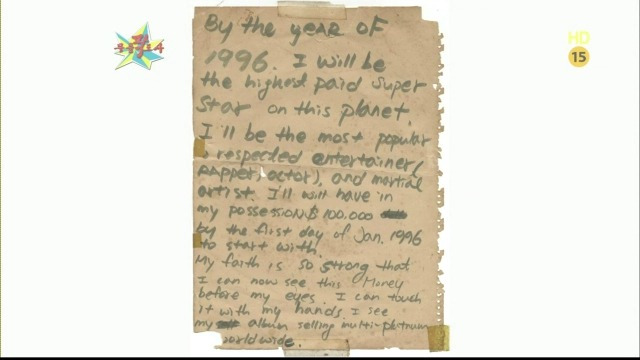 HD
15
By the year of
1996. I will be
the highest paid super
star on this planet.
I'll be the most popular
& respected entertainer(
rapper, actor), and martial
artist. I'll will have in
my possession $ 100.000
by the first day of Jan. 1996
to start with.
My faith is so strong that
I can now see this Money
before my eyes. I can touch
it with my hands I see
my album selling multi-platnum
worldwide.